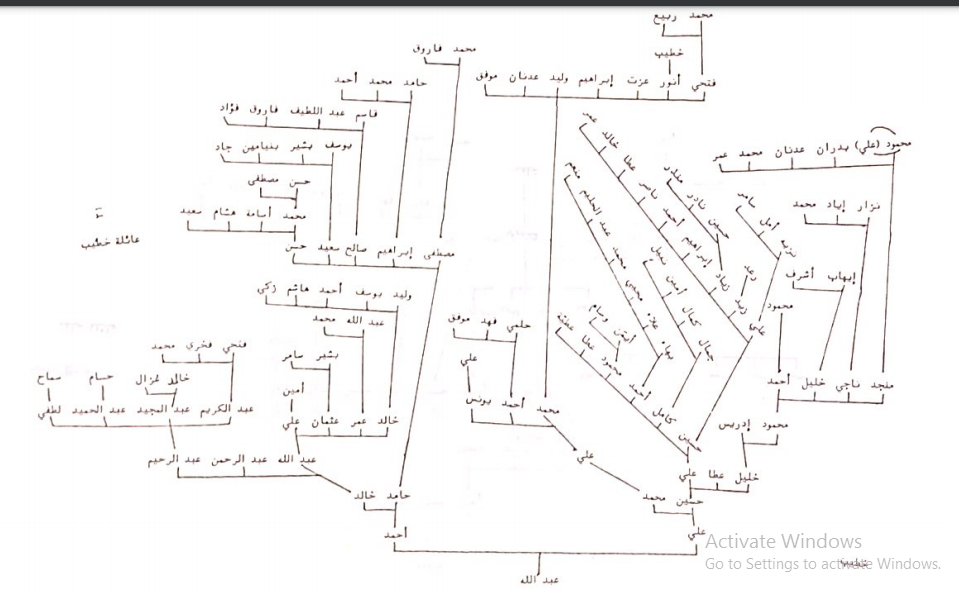 محمد ربيع
خطيب
فتحي أنور عزت إبراهيم وليد عدنان موفق
محمد فاروق
حامد محمد أحمد
قاسم عبد اللطيف فاروق فؤاد
يوسف بشير بنيامين جاد
حسن مصطفى
محمد أسامة هشام سعيد
مصطفى إبراهيم صالح سعيد حسن
عائلة خطيب
محمود (علي) بدران عدنان محمد عمر
نزار إياد محمد
إيهاب أشرف
محمود
منجد ناجي خليل أحمد
محمود إدريس
خليل عطا علي
عمر خالد عطا ناصر أحمد إبراهيم زياد زيد علي
منذر نادر حسين
رعد
سامر أمل نزيه
منعم عبد الحليم محمد محيي علاء بهاء
نبيل أمين كمال جمال
وسام أيمن
عطية عطا محمود أحمد كامل حسين
وليد يوسف أحمد هاشم زكي
عبد الله محمد
بشير سامر
أمين
خالد عمر عثمان علي
حلمي فهد موفق
علي
محمد أحمد يونس
علي
فتحي فخري محمد
خالد غزال
حسام
سماح
عبد الكريم عبد المجيد عبد الحميد لطفي
عبد الله عبد الرحمن عبد الرحيم
حامد خالد
أحمد
حسين محمد
علي
عبد الله
خطيب
Activate Windows
Go to Settings to activate Windows.